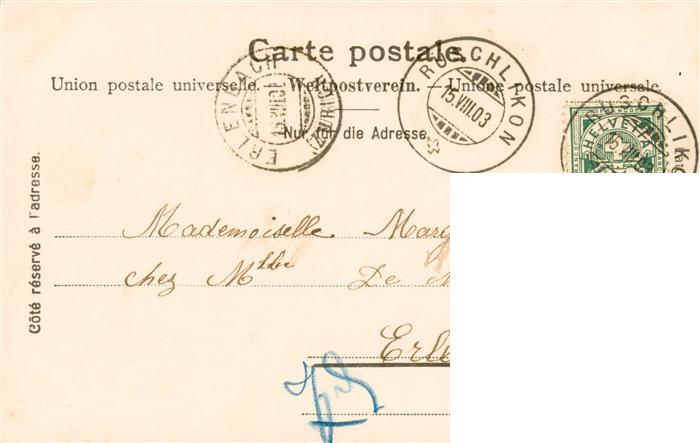 Carte postale.
Union postale universelle. — Weltpostverein. — Unione postale universale.
Nur für die Adresse.
ERLENBACH
15.VIII.03
(ZÜRICH)
RÜSCHLIKON
15.VIII.03
RÜSCHLIKO
HELVETIA
FRANCO
Côté réservé à l'adresse.
Mademoiselle Marg
chez Mlle De
Erle